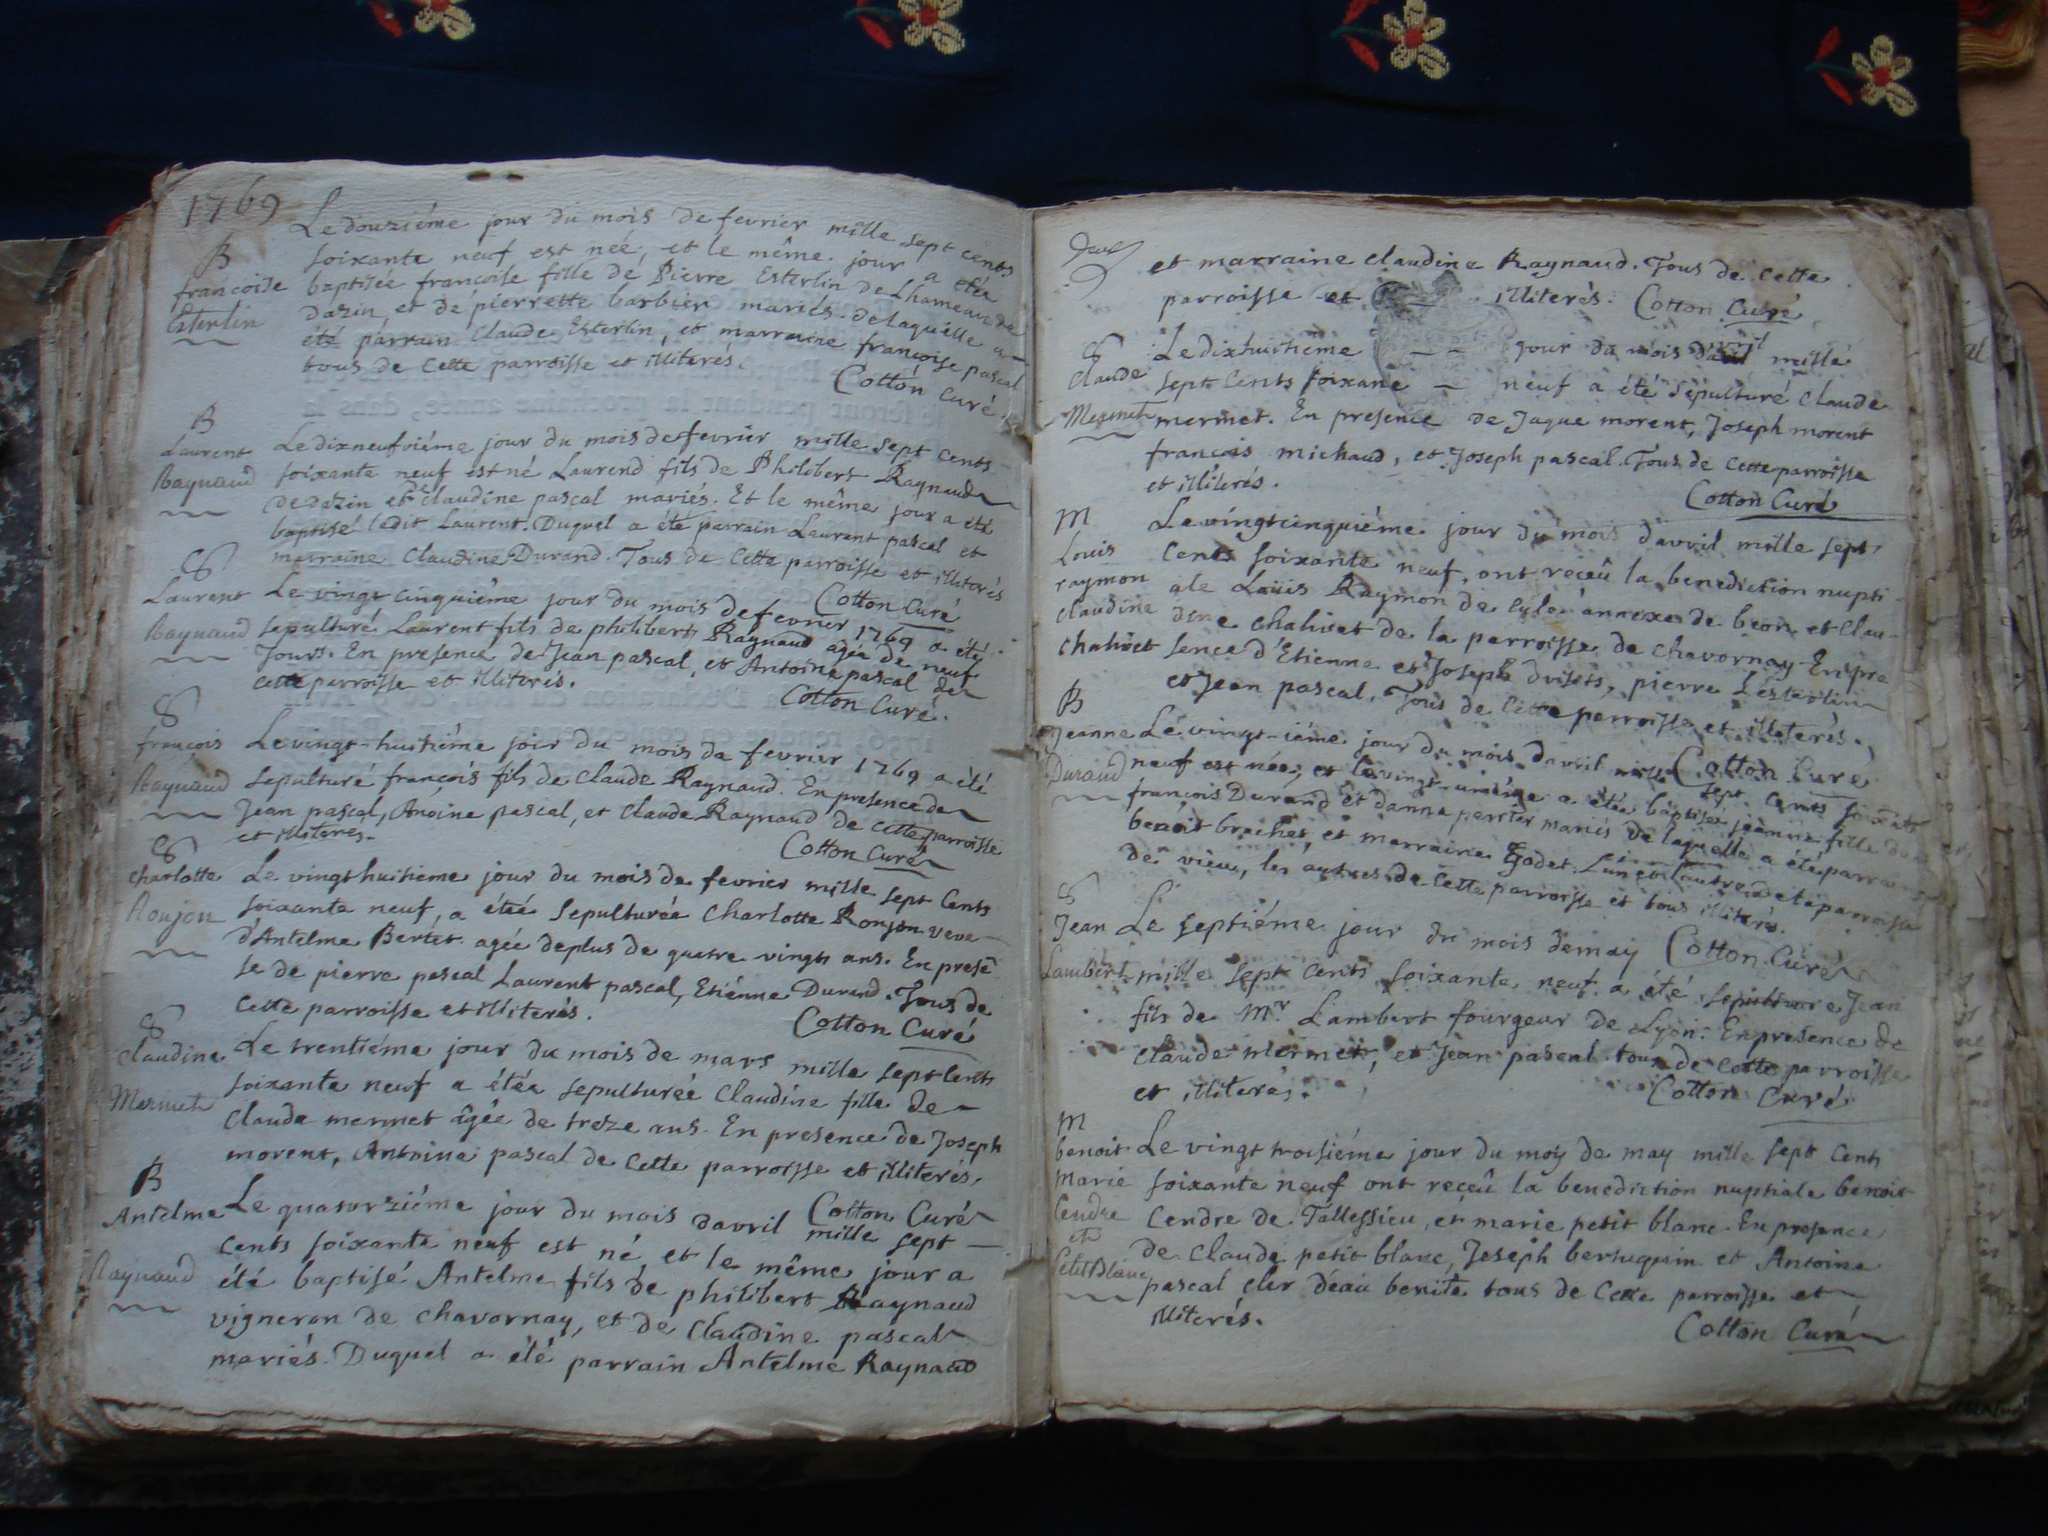 1769
Le douziéme jour du mois de fevrier mille sept cents
B
francoise
Esterlin
soixante neuf est neé, et le même jour a etéé
baptiséé francoise fille de Pierre Esterlin de Lhameau de
dazin, et de pierrette barbier mariés. de laquelle a
été parrain Claude Esterlin, et marraine françoise pascal
tous de Cette parroisse et illiteres.
Cotton Curé.
B
Laurent
Raynaud
Le dixneufviéme jour du mois de fevrier mille sept cents
soixante neuf est né Laurend fils de Philibert Raynaud
de dazin et de claudine pascal mariés. Et le même jour a été
baptisé ledit Laurent. Duquel a été parrain Laurent pascal et
marraine Claudine Durand. Tous de Cette parroisse et illiterés
Cotton Curé
S
Laurent
Raynaud
Le vingt cinquiéme jour du mois de fevrier 1769 a été
sepulturé Laurent fils de philibert Raynaud agée de neuf
Jours. En presence de Jean pascal, et Antoine pascal de
cette parroisse et illiterés.
Cotton Curé.
S
françois
Raynaud
Le vingt-huitiéme joir du mois da fevrier 1769 a été
sepulturé françois fils de Claude Raynaud. En presence de
Jean pascal, Anoine pascal, et Claude Raynaud de cette parroisse
et illiteres.
Cotton Curé
S
Charlotte
Roujon
Le vingt huitieme jour du mois de fevrier mille sept Cents
soixante neuf, a étéé Sepulturéé Charlotte Ronjon veve
d'Antelme Bertet agéé deplus de quatre vingts ans. En presé
se de pierre pascal Laurent pascal, Etiénne Durand. Tous de
Cette parroisse et illiterés.
Cotton Curé
S
Claudine
Mermet
Le trentiéme jour du mois de mars mille sept Cents
soixante neuf a étéé sepulturéé Claudine fille de
Claude mermet âgéé de treze ans. En presence de Joseph
morent, Antoine pascal de Cette parroisse et illiterés.
Cotton Curé
B
Antelme
Raynaud
Le quatorziéme jour du mois davril mille sept
cents soixante neuf est né et le même jour a
été baptisé Antelme fils de philibert Raynaud
vigneron de Chavornay, et de Claudine pascal
mariés. Duquel a été parrain Antelme Raynaud
et marraine Claudine Raynaud. Tous de Cette
parroisse et illiterés. Cotton Curé
S
Claude
Le dixhuitieme jour du mois d'avril mille
sept Cents soixane neuf a été sepulturé Claude
mermet. En presence de Jaque morent, Joseph morent
francois michaud, et Joseph pascal. Tous de Cette parroisse
et illiterés.
Cotton Curé
M
Louis
raymon
claudine
Chalivet
Le vingt cinquiéme jour du mois davril mille sept
Cents soixante neuf, ont reçeû la benediction nupti-
ale Loüis Raymon de annexe de beon et Clau-
dine Chalivet de la parroisse de Chavornay. En pre
sence d'Etienne et Joseph pierre Lesterlin
et Jean pascal. Tous de Cette parroisse et illiterés.
Cotton Curé
B
Jeanne
Durand
Le vingt-iéme jour du mois davril mille sept Cents soixate
neuf est née, et le vingt-uniéme a étéé baptisée jeanne fille de
françois Durand et danne mariés de laquelle a été parrain
benoit brachet, et marraine Godet.
de vieu, les autres de Cette parroisse et tous illiterés.
Cotton Curé
S
Jean
Lambert
Le septiéme jour du mois demay
mille sept Cents soixante neuf a été sepulturé Jean
fils de Mr Lambert fourgeur de Lyon. En presence de
Claude mermet, et Jean pascal tous de Cette parroisse
et illiterés.
Cotton Curé
M
benoit
Marie
Cendre
et
Petit Blanc
Le vingt troisiéme jour du moy de may mille sept Cents
soixante neuf ont reçeû la benediction nuptiale benoit
Cendre de Tallessieu, et marie petit blanc. En presence
de Claude petit blanc, Joseph bertuquin et Antoine
pascal cler déau benite tous de Cette parroisse et
illiterés.
Cotton Curé